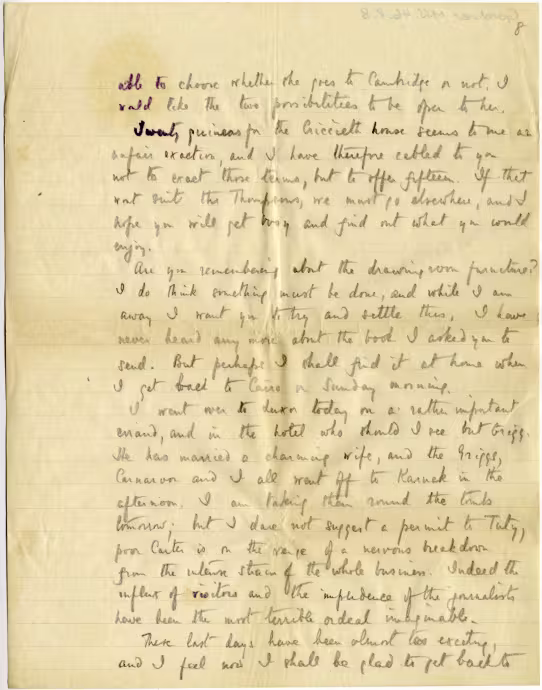 8
able to choose whether she goes to Cambridge or not. I
would like the two possibilities to be open to her.
Twenty guineas for the Criccieth house seems to me an
unfair exaction, and I have therefore cabled to you
not to exact those terms, but to offer fifteen. If that
wont suit the Thompsons, we must go elsewhere, and I
hope you will get busy and find out what you would
enjoy.
Are you remembering about the drawing room furniture?
I do think something must be done, and while I am
away I want you to try and settle this. I have
never heard any more about the book I asked you to
send. But perhaps I shall find it at home when
I get back to Cairo on Sunday morning.
I went over to Luxor today on a rather important
errand, and in the hotel who should I see but Grigg.
He has married a charming wife, and the Griggs,
Carnarvon and I all went off to Karnak in the
afternoon. I am taking them round the tombs
tomorrow; but I dare not suggest a permit to Tuty,
poor Carter is on the verge of a nervous breakdown
from the intense strain of the whole business. Indeed the
influx of visitors and the impudence of the journalists
have been the most terrible ordeal imaginable.
These last days have been almost too exciting,
and I feel now I shall be glad to get back to